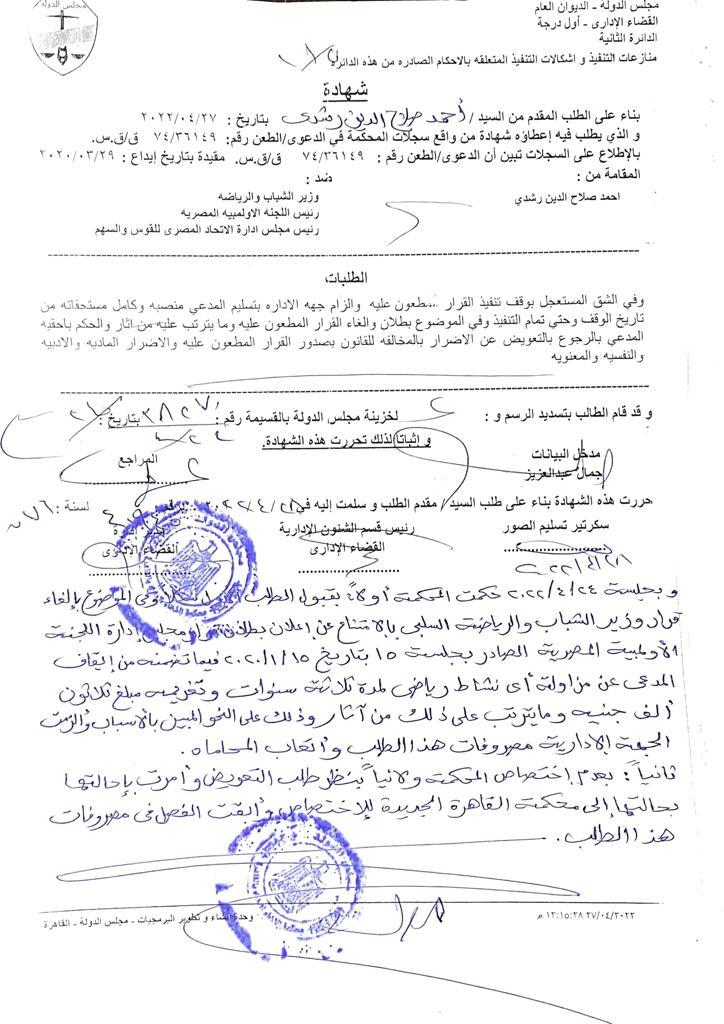 مجلس الدولة
مجلس الدولة - الديوان العام
القضاء الإدارى - أول درجة
الدائرة الثانية
منازعات التنفيذ و اشكالات التنفيذ المتعلقه بالاحكام الصادره من هذه الدائرة
شهادة
بناء على الطلب المقدم من السيد / أحمد صلاح الدين رشدى بتاريخ : ٢٠٢٢/٠٤/٢٧
و الذي يطلب فيه إعطاؤه شهادة من واقع سجلات المحكمة في الدعوى/الطعن رقم: ٧٤/٣٦١٤٩ ق/ق.س.
بالإطلاع على السجلات تبين أن الدعوى/الطعن رقم : ٧٤/٣٦١٤٩ ق/ق.س. مقيدة بتاريخ إيداع : ٢٠٢٠/٠٣/٢٩
المقامة من : ضد :
احمد صلاح الدين رشدي وزير الشباب والرياضه
رئيس اللجنه الاولمبيه المصريه
رئيس مجلس ادارة الاتحاد المصرى للقوس والسهم
الطلبات
وفي الشق المستعجل بوقف تنفيذ القرار المطعون عليه والزام جهه الاداره بتسليم المدعي منصبه وكامل مستحقاته من
تاريخ الوقف وحتي تمام التنفيذ وفي الموضوع بطلان والغاء القرار المطعون عليه وما يترتب عليه من اثار والحكم باحقيه
المدعي بالرجوع بالتعويض عن الاضرار بالمخالفه للقانون بصدور القرار المطعون عليه والاضرار الماديه والادبيه
والنفسيه والمعنويه
و قد قام الطالب بتسديد الرسم و : لخزينة مجلس الدولة بالقسيمة رقم : ٣٨٢٧ بتاريخ :
و إثباتا لذلك تحررت هذه الشهادة.
مدخل البيانات المراجع
جمال عبدالعزيز
حررت هذه الشهادة بناء على طلب السيد / مقدم الطلب و سلمت إليه في ٢٠٢٢/٤/٢٨ لسنة : ٧٦
سكرتير تسليم الصور رئيس قسم الشئون الإدارية
القضاء الإدارى القضاء الإدارى
٢٠٢٢/٤/٢٨
و بجلسة ٢٠٢٢/٤/٢٤ حكمت المحكمة أولاً: بقبول الطلب الموضوع بإلغاء
قرار وزير الشباب والرياضة السلبى بالامتناع عن اعلان بطلان قرار مجلس إدارة اللجنة
الأولمبية المصرية الصادر بجلسة ١٥ بتاريخ ٢٠٢٠/١/١٥ فيما تضمنه من إيقاف
المدعى عن مزاولة أى نشاط رياضى لمدة ثلاثة سنوات وتغريمه مبلغ ثلاثون
ألف جنيه وما يترتب على ذلك من آثار وذلك على النحو المبين بالأسباب وألزمت
الجهة الإدارية مصروفات هذا الطلب وأتعاب المحاماه.
ثانياً: بعدم إختصاص المحكمة ولائياً بنظر طلب التعويض وأمرت بإحالتها
بحالتها إلى محكمة القاهرة الجديدة للإختصاص وأبقت الفصل فى مصروفات
هذا الطلب.
٢٧/٠٤/٢٠٢٢ ١٢:١٥:٢٨ م وحدة إنشاء و تطوير البرمجيات - مجلس الدولة - القاهرة